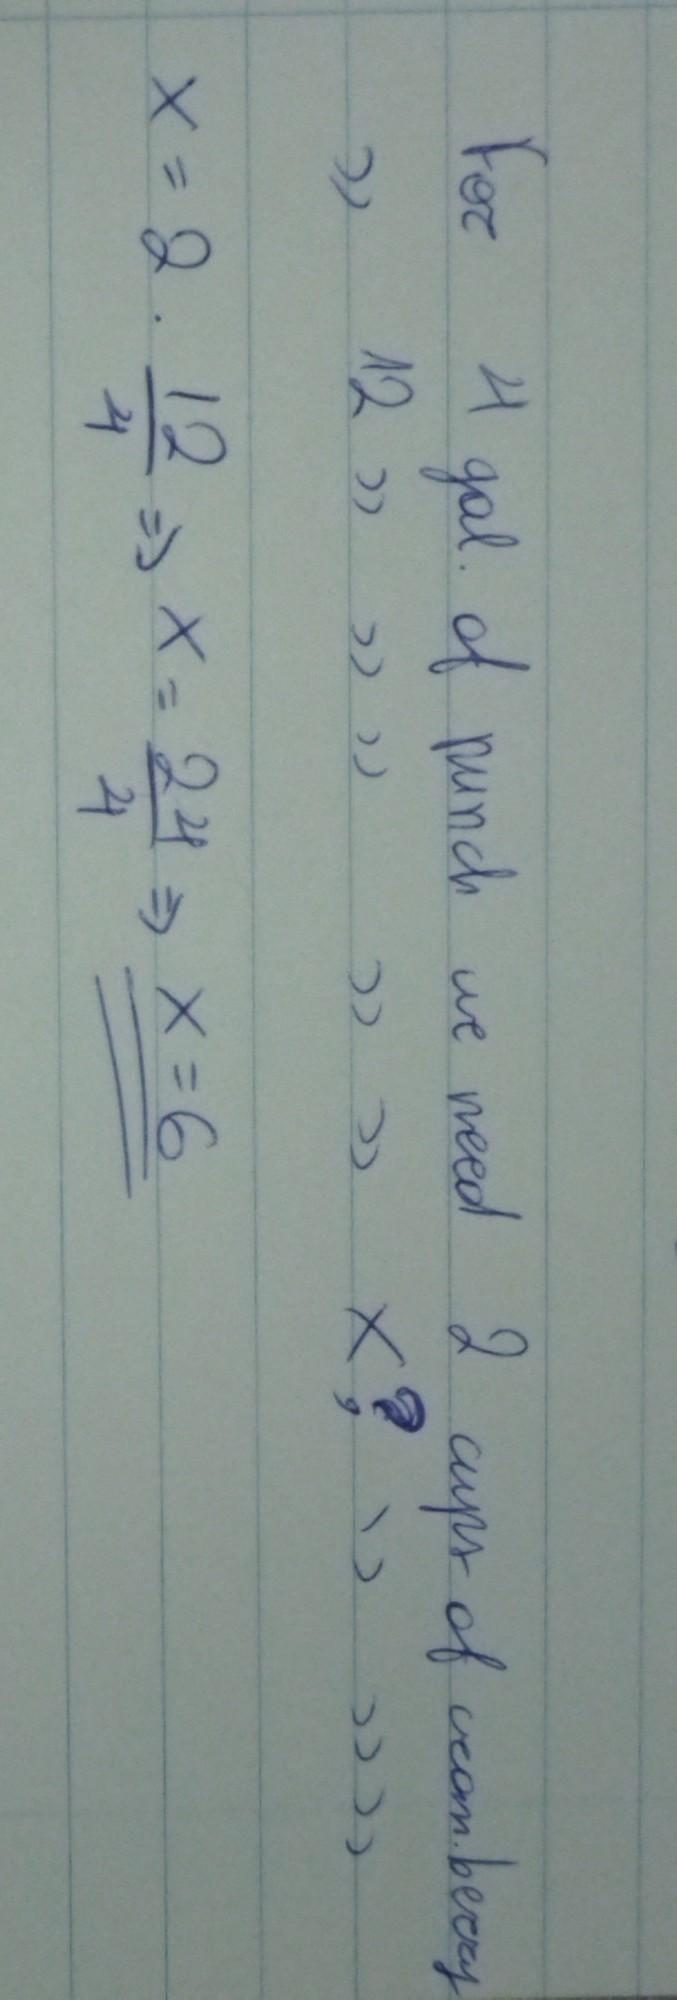 For 4 gal. of punch we need 2 cups of cran.berry
,, 12 ,, ,, ,, ,, ,, x? ,, ,, ,,
x = 2 · 12/4 => x = 24/4 => x = 6